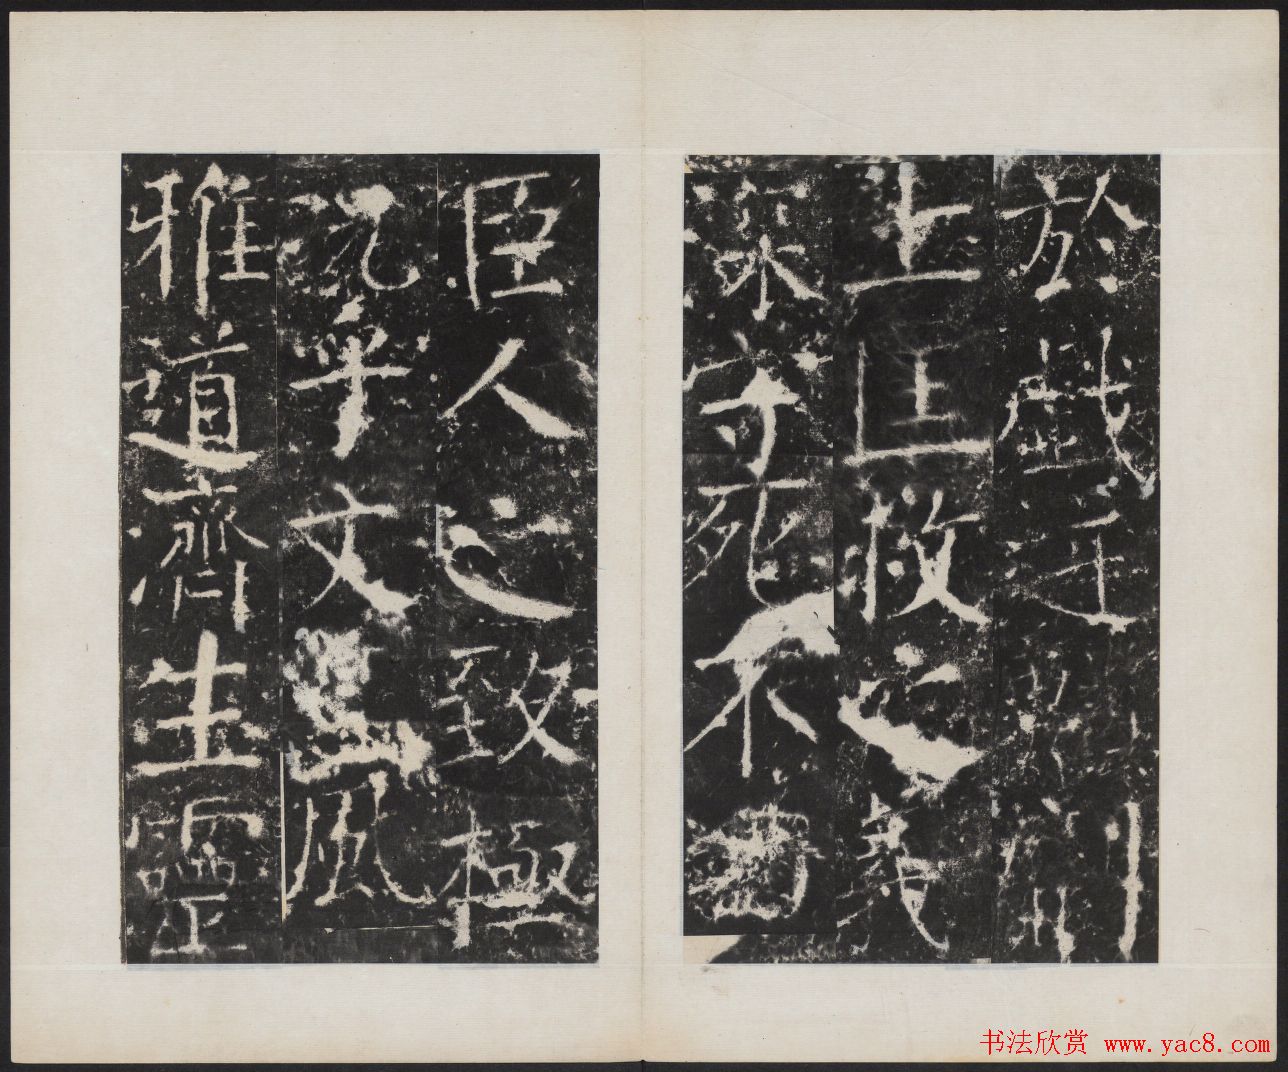 於戲
上匡救之義
深守死不
臣人之致極
況乎文風
雅道濟生靈
书法欣赏 www.yac8.com